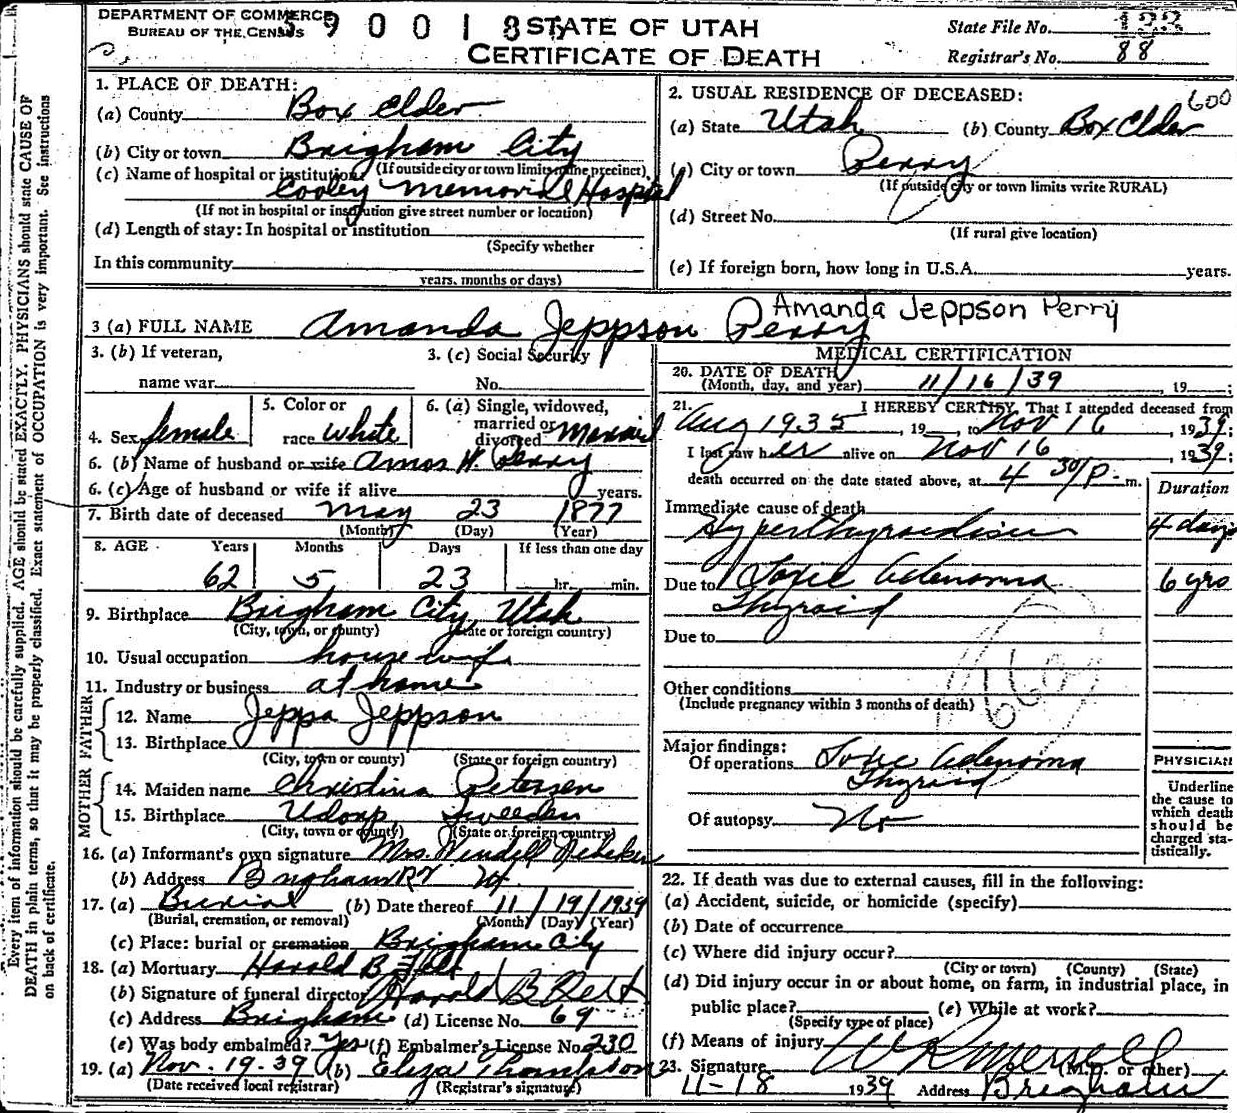 DEPARTMENT OF COMMERCE
BUREAU OF THE CENSUS
STATE OF UTAH
CERTIFICATE OF DEATH
State File No. 133
Registrar's No. 88
Every item of information should be carefully supplied. AGE should be stated EXACTLY. PHYSICIANS should state CAUSE OF
DEATH in plain terms, so that it may be properly classified. Exact statement of OCCUPATION is very important. See instructions
on back of certificate.
1. PLACE OF DEATH:
(a) County Box Elder
(b) City or town Brigham City
(If outside city or town limits name precinct)
(c) Name of hospital or institution:
Cooley Memorial Hospital
(If not in hospital or institution give street number or location)
(d) Length of stay: In hospital or institution
(Specify whether
In this community
years, months or days)
2. USUAL RESIDENCE OF DECEASED: 600
(a) State Utah (b) County Box Elder
(c) City or town Perry
(If outside city or town limits write RURAL)
(d) Street No.
(If rural give location)
(e) If foreign born, how long in U.S.A. years.
3 (a) FULL NAME Amanda Jeppson Perry
Amanda Jeppson Perry
3. (b) If veteran,
name war
3. (c) Social Security
No.
4. Sex female
5. Color or
race white
6. (a) Single, widowed,
married or
divorced Married
6. (b) Name of husband or wife Amos W. Perry
6. (c) Age of husband or wife if alive years.
7. Birth date of deceased May 23 1877
(Month) (Day) (Year)
8. AGE Years Months Days If less than one day
62 5 23 hr. min.
9. Birthplace Brigham City, Utah
(City, town, or county) (State or foreign country)
10. Usual occupation housewife
11. Industry or business at home
FATHER
12. Name Jeppa Jeppson
13. Birthplace
(City, town or county) (State or foreign country)
MOTHER
14. Maiden name Christina Petersen
15. Birthplace Sweeden
(City, town or county) (State or foreign country)
16. (a) Informant's own signature Mrs. Wendell Nebeker
(b) Address Brigham
17. (a) Burial (b) Date thereof 11/19/1939
(Burial, cremation, or removal) (Month) (Day) (Year)
(c) Place: burial or cremation Brigham City
18. (a) Mortuary Harold B Felt
(b) Signature of funeral director Harold B Felt
(c) Address Brigham (d) License No. 69
(e) Was body embalmed? Yes (f) Embalmer's License No. 230
19. (a) Nov. 19-39 (b) Eliza Thompson
(Date received local registrar) (Registrar's signature)
MEDICAL CERTIFICATION
20. DATE OF DEATH
(Month, day, and year) 11/16/39, 19 ;
21. I HEREBY CERTIFY, That I attended deceased from
Aug 1935, 19 , to Nov 16, 1939;
I last saw her alive on Nov 16, 1939;
death occurred on the date stated above, at 4 30/P. m.
Duration
Immediate cause of death
Hyperthyroidism 4 days
Due to Toxic Adenoma 6 yrs
Thyroid
Due to
Other conditions
(Include pregnancy within 3 months of death)
Major findings:
Of operations Toxic Adenoma
Thyroid
Of autopsy No
PHYSICIAN
Underline
the cause to
which death
should be
charged sta-
tistically.
22. If death was due to external causes, fill in the following:
(a) Accident, suicide, or homicide (specify)
(b) Date of occurrence
(c) Where did injury occur?
(City or town) (County) (State)
(d) Did injury occur in or about home, on farm, in industrial place, in
public place? (e) While at work?
(Specify type of place)
(f) Means of injury
23. Signature W R Merrell (M.D. or other)
11-18 1939 Address Brigham